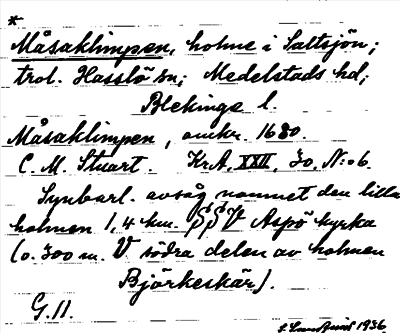 *
Måsaklimpen, holme i Saltsjön;
trol. Hasslö sn; Medelstads hd;
Blekinge l.
Måsaklimpen, omkr. 1680.
C. M. Stuart. KrA. XXII, 30, N:o 6.
Synbarl. avsåg namnet den lilla
holmen 1,4 km. SSV Aspö kyrka
(o. 300 m. V södra delen av holmen
Björkeskär).
G. 11.
1936